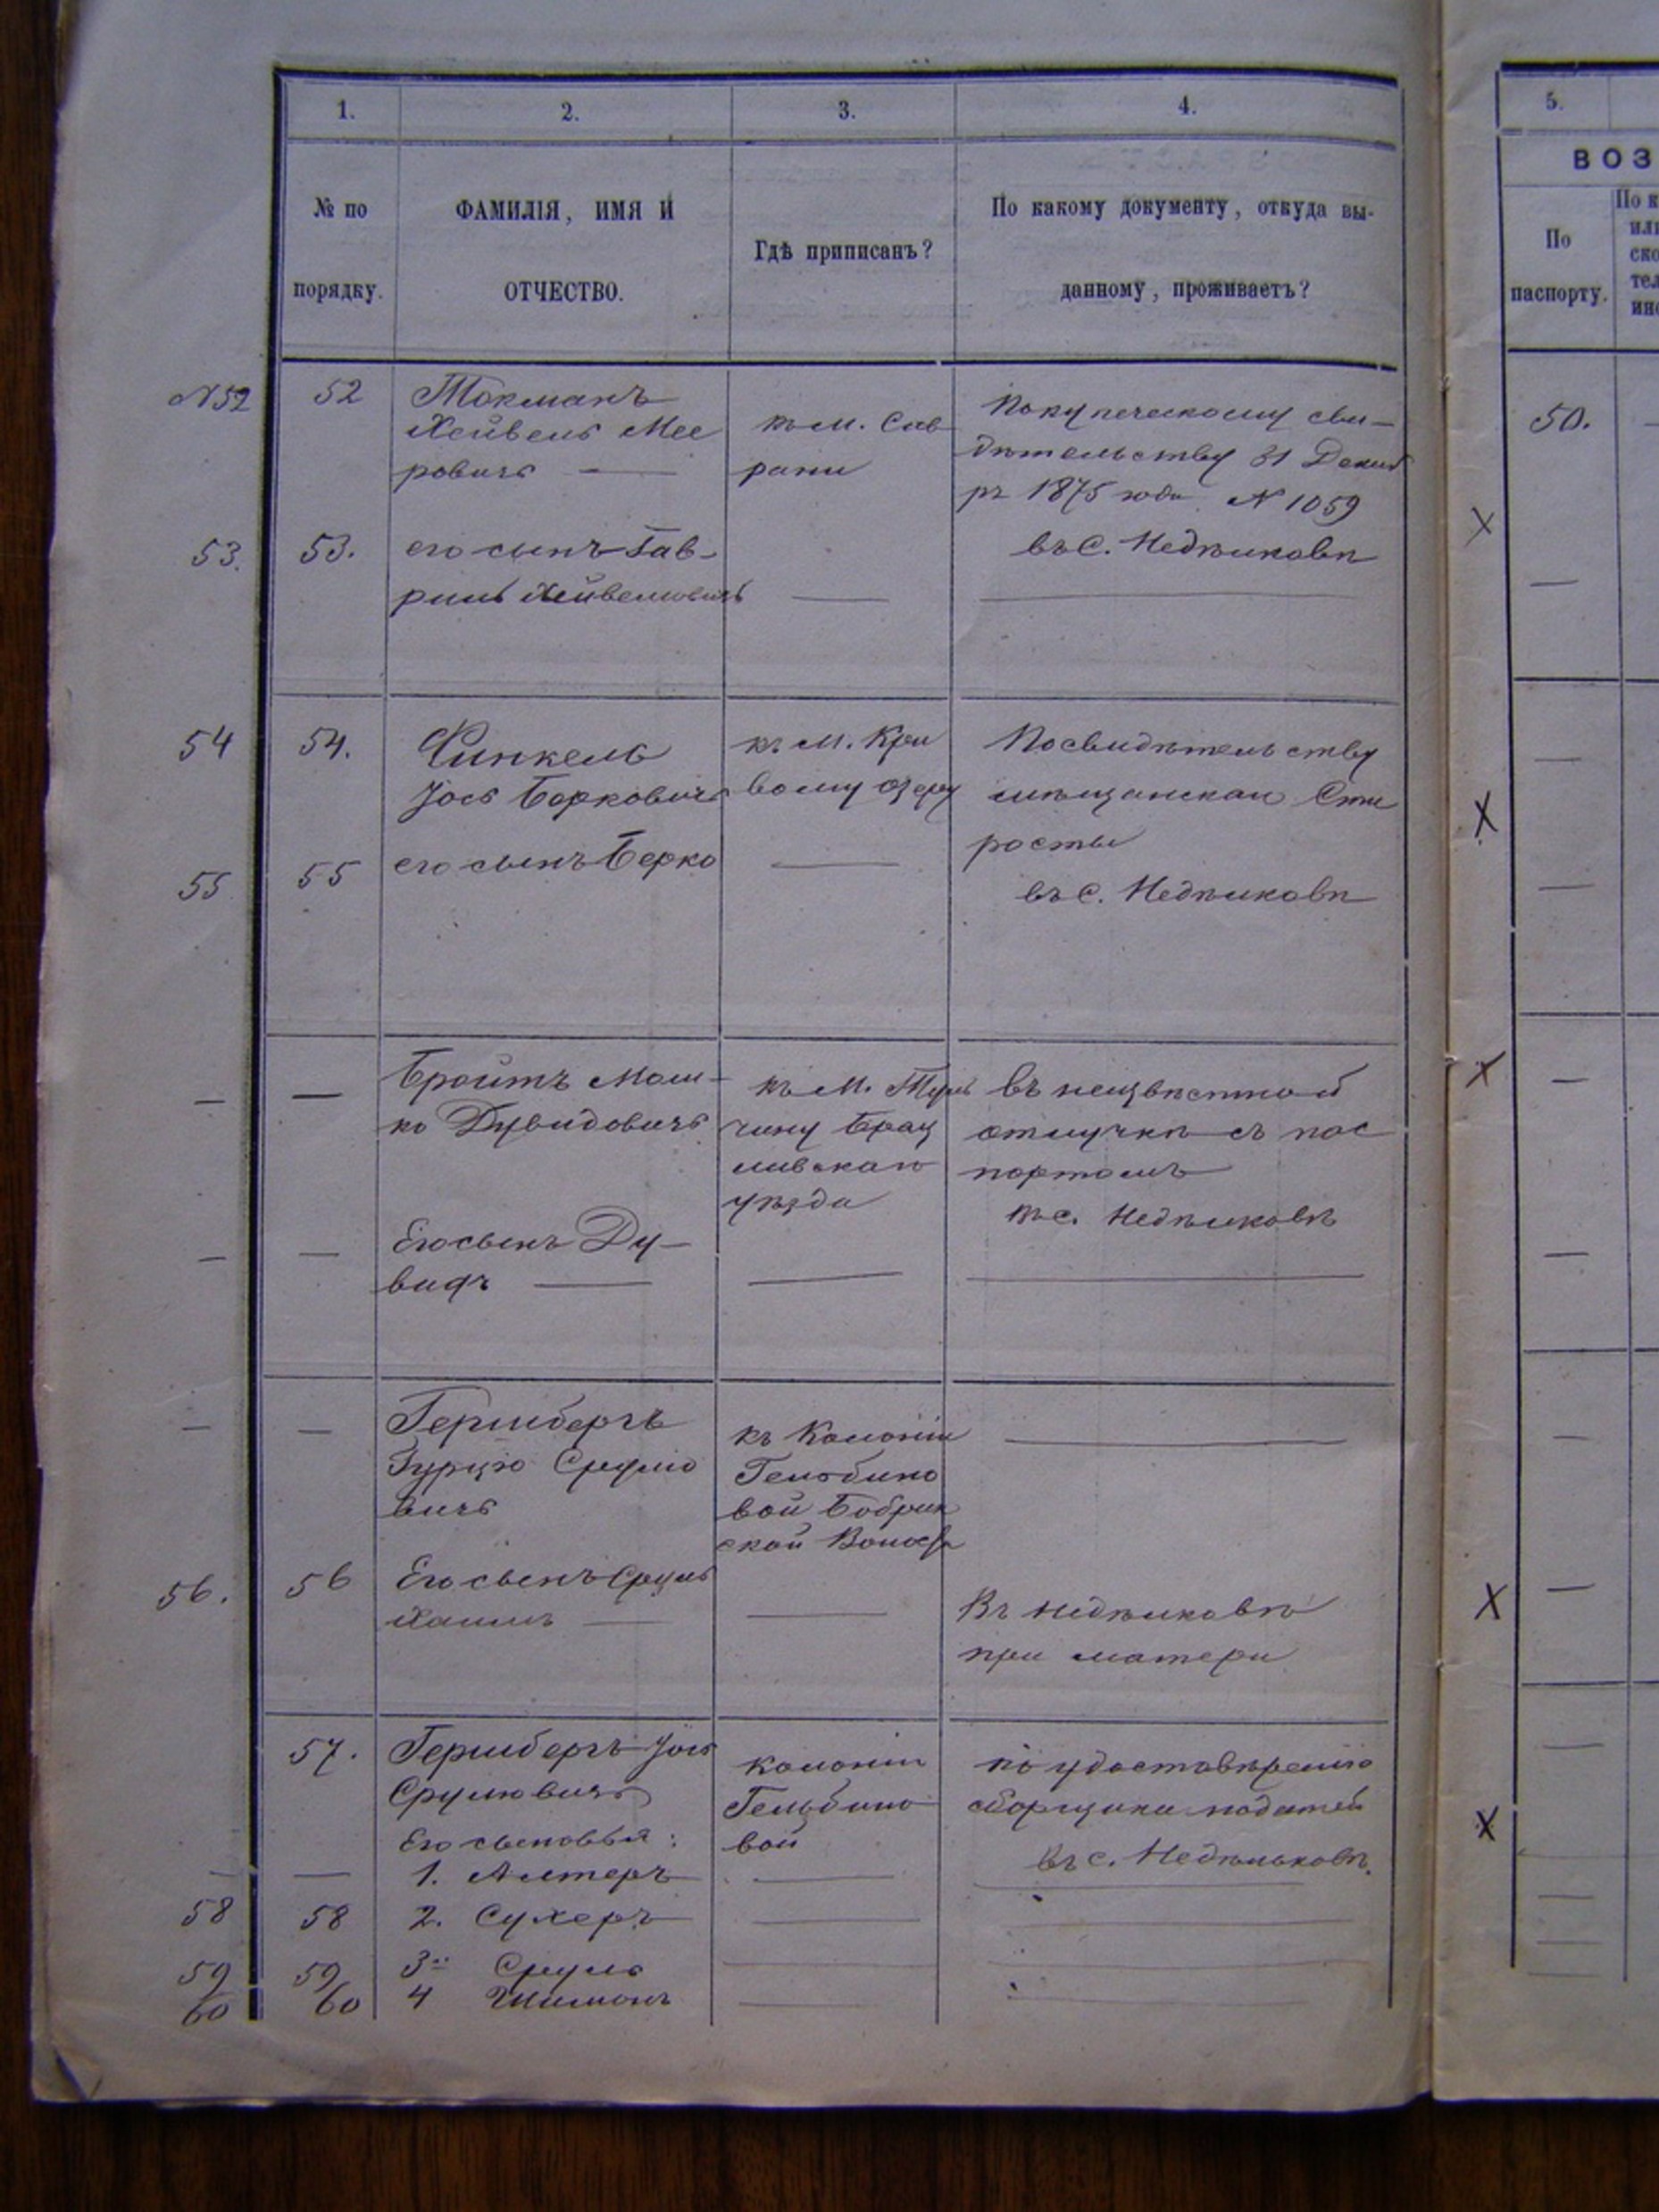 1. 2. 3. 4.
№ по порядку.
ФАМИЛІЯ, ИМЯ И ОТЧЕСТВО.
Гдѣ приписанъ?
По какому документу, откуда вы-
данному, проживаетъ?
5.
ВОЗ
По паспорту.
По к
или
ско
тел
ин
N 52 52 Токманъ
Хейвель Мее
ровичъ —
къ м. Сав
рани
По купеческому сви-
дѣтельству 31 Декаб
ря 1875 года N 1059
50.
53. 53. его сынъ Гав-
риль Хейвеловичъ
въ с. Недѣлковѣ
54 54. Финкель
Іось Берковичъ
къ м. Кри
вому озеру
По свидѣтельству
мѣщанскаго Ста
росты
55 55 его сынъ Берко
въ с. Недѣлковѣ
— — Бройтъ Мош-
ко Дувидовичъ
къ м. Туль
чину Брац
лавскаго
уѣзда
въ неизвѣстной
отлучкѣ съ пас
портомъ
въ с. Недѣлковѣ
— — Его сынъ Ду-
видъ —
— — Гершбергъ
Срулио
вичъ
къ Колоніи
Гельбино
вой Бобрик
ской Волости
56. 56 Его сынъ Сруль
Хаимъ —
Въ Недѣлковѣ
при матери
57. Гершбергъ Іось
Срулювичъ
колоніи
Гельбино
вой
по удостовѣренію
сборщика податей
въ с. Недѣльковѣ.
Его сыновья:
— — 1. Алтеръ
58 58 2. Сухеръ
59 59 3 Сруль
60 60 4 Шимонъ
X
X
X
X
X